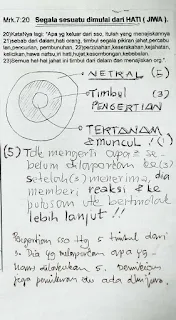 Mrk.7:20 Segala sesuatu dimulai dari HATI ( JIWA ).
20)KataNya lagi: "Apa yg keluar dari sso, itulah yang menajiskannya
21)sebab dari dalam,hati orang, timbul segala pikiran jahat,percabu
lan,pencurian, pembunuhan, 22)perzinahan,keserakahan,kejahatan,
kelicikan,hawa nafsu,iri hati,hujat,kesombongan,kebebalan.
23)Semua hal-hal jahat ini timbul dari dalam dan menajiskan org.".
NETRAL (5)
Timbul (3)
PENGERTIAN
TERTANAM
& muncul! (1)
(5) Tdk mengerti apa2 se
belum dilaporkan ke(3)
setelah(5) menerima, dia
memberi reaksi & ke
putusan utk bertindak
lebih lanjut!!
Pengertian sso ttg 5 timbul dari
3. Dia yg melaporkan apa yg
harus dilakukan 5. Demikian
juga pemikiran itu ada